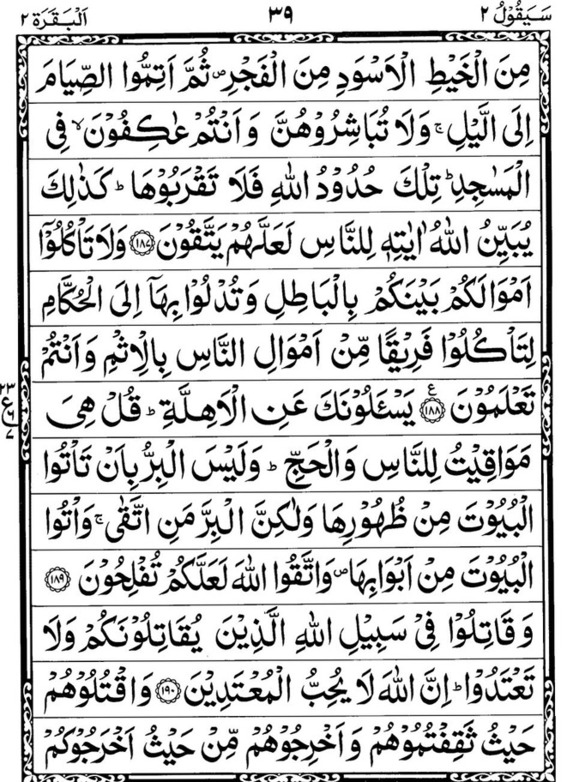 سَيَقُوْلُ ٢ ٣٩ اَلْبَقَرَة ٢
مِنَ الْخَيْطِ الْاَسْوَدِ مِنَ الْفَجْرِ ص ثُمَّ اَتِمُّوا الصِّيَامَ
اِلَى الَّيْلِ ۚ وَلَا تُبَاشِرُوْهُنَّ وَ اَنْتُمْ عٰكِفُوْنَ ۙ فِى
الْمَسٰجِدِ ؕ تِلْكَ حُدُوْدُ اللّٰهِ فَلَا تَقْرَبُوْهَا ؕ كَذٰلِكَ
يُبَيِّنُ اللّٰهُ اٰيٰتِهٖ لِلنَّاسِ لَعَلَّهُمْ يَتَّقُوْنَ ۝١٨٧ وَلَا تَاْكُلُوْٓا
اَمْوَالَكُمْ بَيْنَكُمْ بِالْبَاطِلِ وَ تُدْلُوْا بِهَآ اِلَى الْحُكَّامِ
لِتَاْكُلُوْا فَرِيْقًا مِّنْ اَمْوَالِ النَّاسِ بِالْاِثْمِ وَ اَنْتُمْ
تَعْلَمُوْنَ ۝١٨٨ ع يَسْـَٔلُوْنَكَ عَنِ الْاَهِلَّةِ ؕ قُلْ هِىَ
٢٣ ع ٦ ٧
مَوَاقِيْتُ لِلنَّاسِ وَالْحَجِّ ؕ وَلَيْسَ الْبِرُّ بِاَنْ تَاْتُوا
الْبُيُوْتَ مِنْ ظُهُوْرِهَا وَلٰكِنَّ الْبِرَّ مَنِ اتَّقٰى ۚ وَاْتُوا
الْبُيُوْتَ مِنْ اَبْوَابِهَا ص وَاتَّقُوا اللّٰهَ لَعَلَّكُمْ تُفْلِحُوْنَ ۝١٨٩
وَ قَاتِلُوْا فِىْ سَبِيْلِ اللّٰهِ الَّذِيْنَ يُقَاتِلُوْنَكُمْ وَلَا
تَعْتَدُوْا ؕ اِنَّ اللّٰهَ لَا يُحِبُّ الْمُعْتَدِيْنَ ۝١٩٠ وَ اقْتُلُوْهُمْ
حَيْثُ ثَقِفْتُمُوْهُمْ وَ اَخْرِجُوْهُمْ مِّنْ حَيْثُ اَخْرَجُوْكُمْ